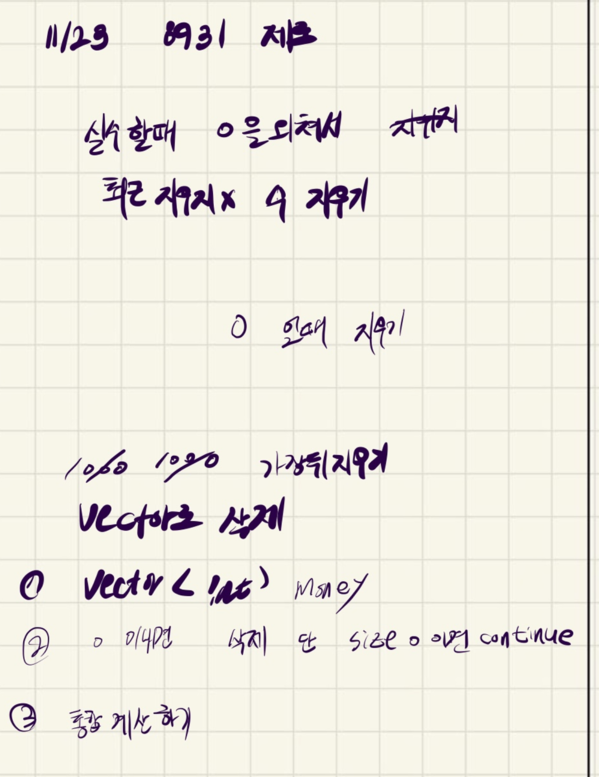 11/23 8931 제로
실수 할때 0을 외쳐서 지우지
최근 지우지 x 수 지우기
0 일때 지우기
1000 1000 가장뒤지우기
Vector로 삭제
① Vector < int > money
② 0 이면 삭제 단 size 0 이면 continue
③ 통합 계산하기